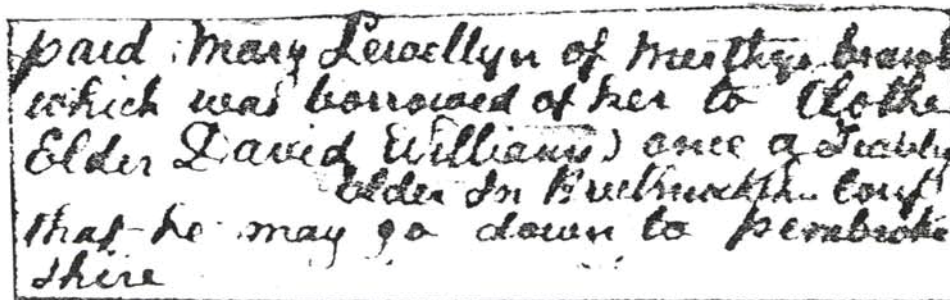 paid Mary Lewellyn of Merthyr branch
which was borrowed of her to Clothe
Elder David Williams) once a
Elder In Conf
that he may go down to Pembroke
shire